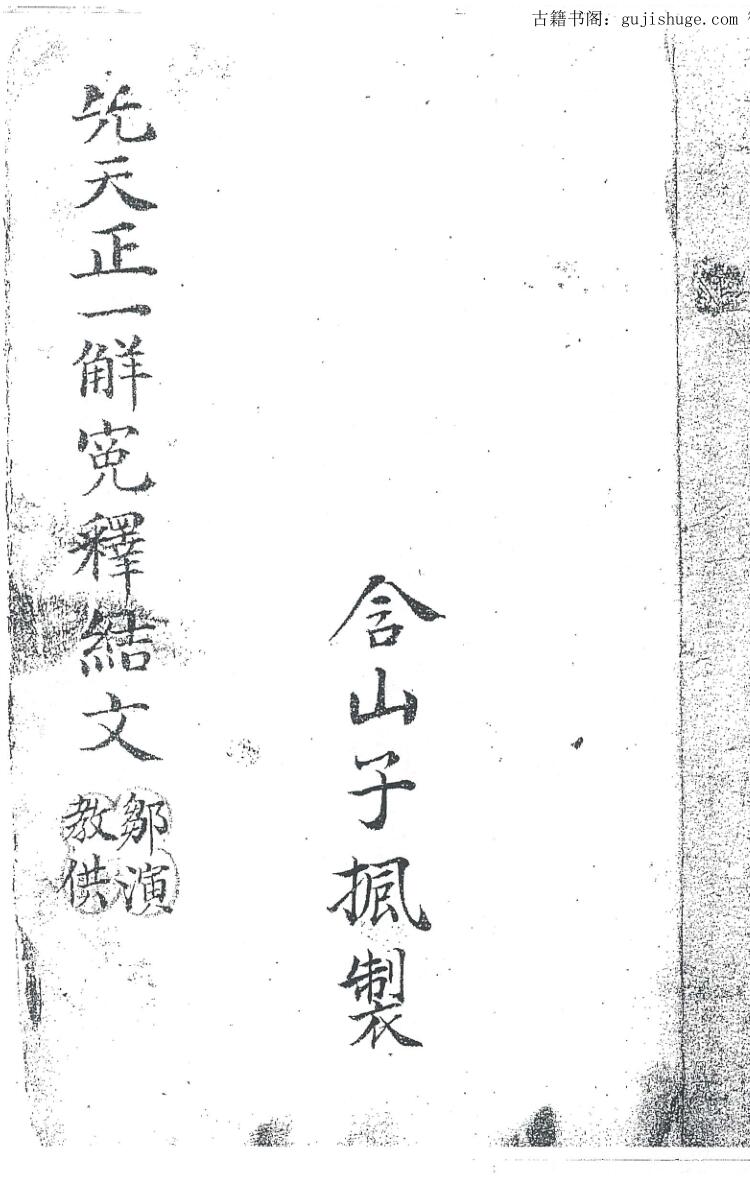 古籍书阁：gujishuge.com
含山子製
先天正一觧寃釋結文
鄒演
教供